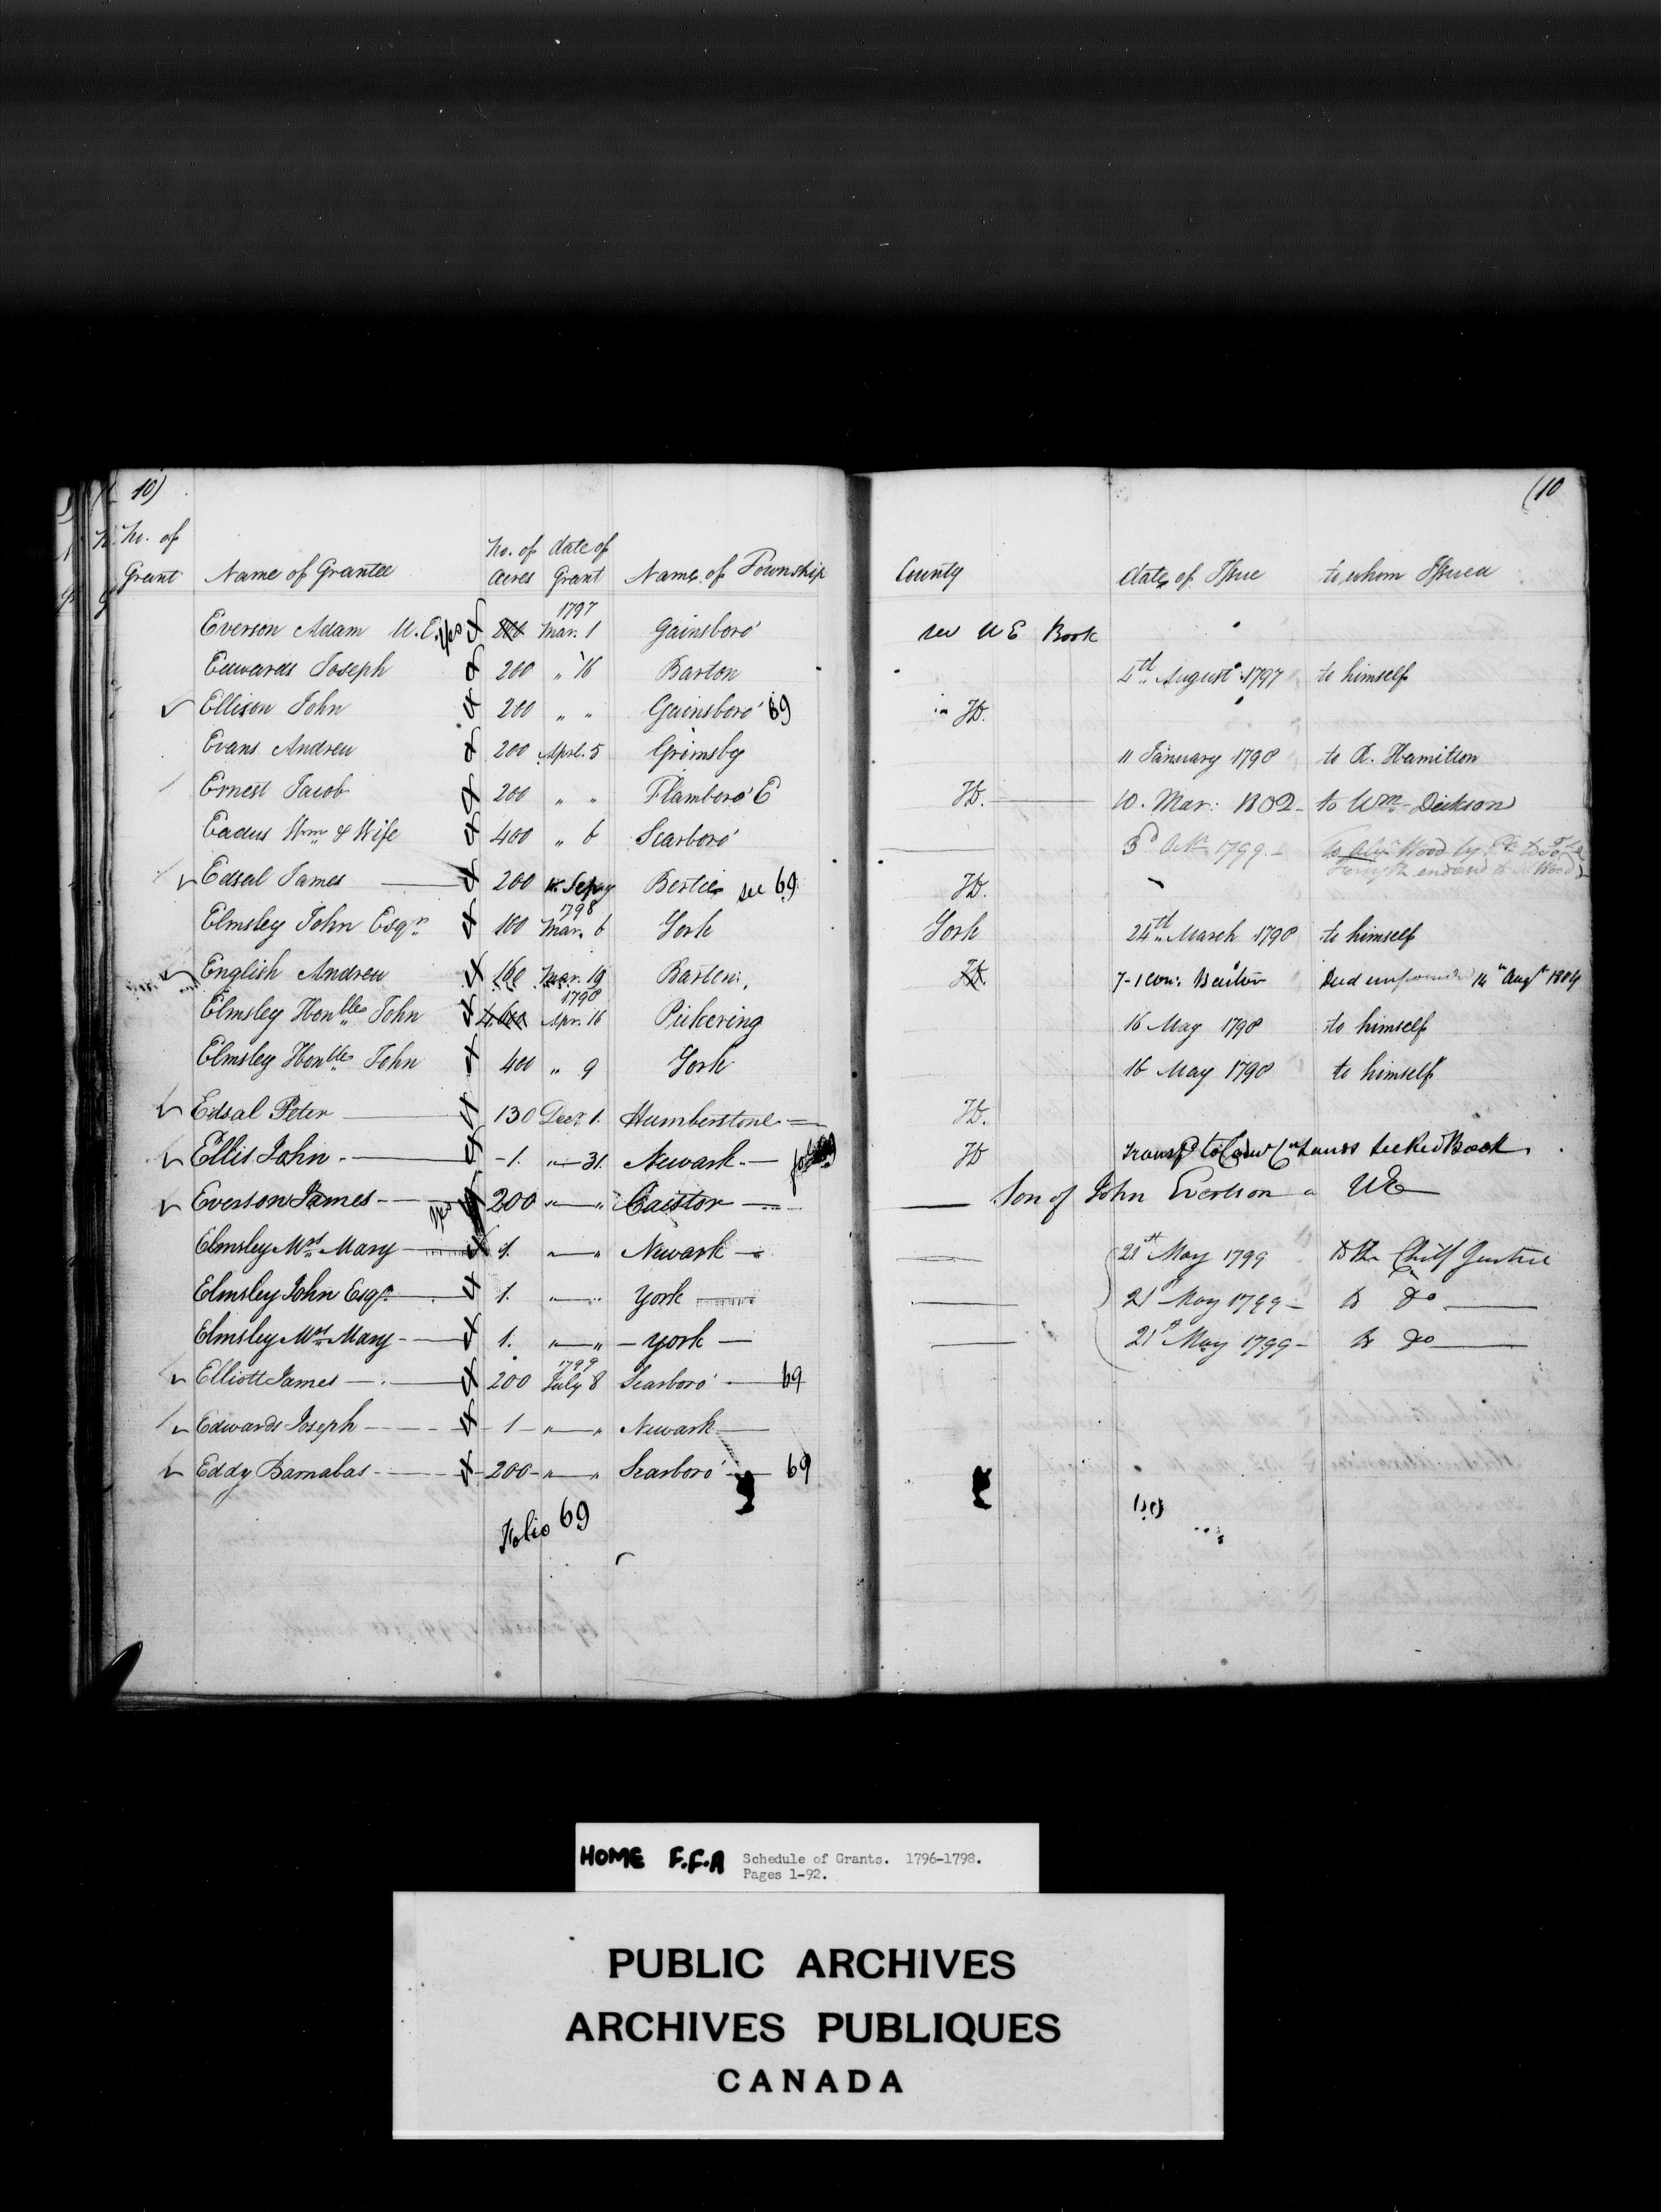 10) (10
No. of
Grant Name of Grantee No. of Acres date of Grant Name of Township County date of Issue to whom Issued
1797
Everson Adam U.E. yes Mar. 1 Gainsboro' see UE Book
Edwards Joseph 200 " 16 Barton 4th August 1797 to himself
Ellison John 200 " " Gainsboro' 69 HD.
Evans Andrew 200 Aprl. 5 Grimsby 11 January 1798 to R. Hamilton
Ernest Jacob 200 " " Flamboro' E HD. 10. Mar: 1802 - to Wm Dickson
Eadus Wm & Wife 400 " 6 Scarboro' 3d Octr 1799 - Wood by
Edsal James 200 Bertie see 69 HD.
1798
Elmsley John Esqr 100 Mar. 6 York York 24th March 1798 to himself
English Andrew 160 Mar. 19 Barton HD. 7-1 con: Barton Deed 14th Augt 1804
1798
Elmsley Honble John Apr. 16 Pickering 16 May 1798 to himself
Elmsley Honble John 400 " 9 York 16 May 1798 to himself
Edsal Peter 130 Decr 1. Humberstone HD.
Ellis John 1. " 31. Newark HD Book
Everson James yes 200 " " Caistor Son of John Everson a UE
Elmsley Mrs Mary 1. " " Newark 21st May 1799 to the Chief Justice
Elmsley John Esqr 1. " " York 21st May 1799 - to Do
Elmsley Mrs Mary 1. " " York 21st May 1799 - to Do
1799
Elliott James 200 July 8 Scarboro' 69
Edwards Joseph 1 " " Newark
Eddy Barnabas 200 " " Scarboro' 69
Folio 69
HOME F.F.A Schedule of Grants. 1796-1798.
Pages 1-92.
PUBLIC ARCHIVES
ARCHIVES PUBLIQUES
CANADA